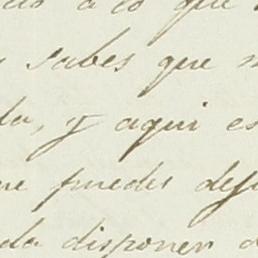 a lo que
sabes que
da, y aqui es
ue puedes
da disponer